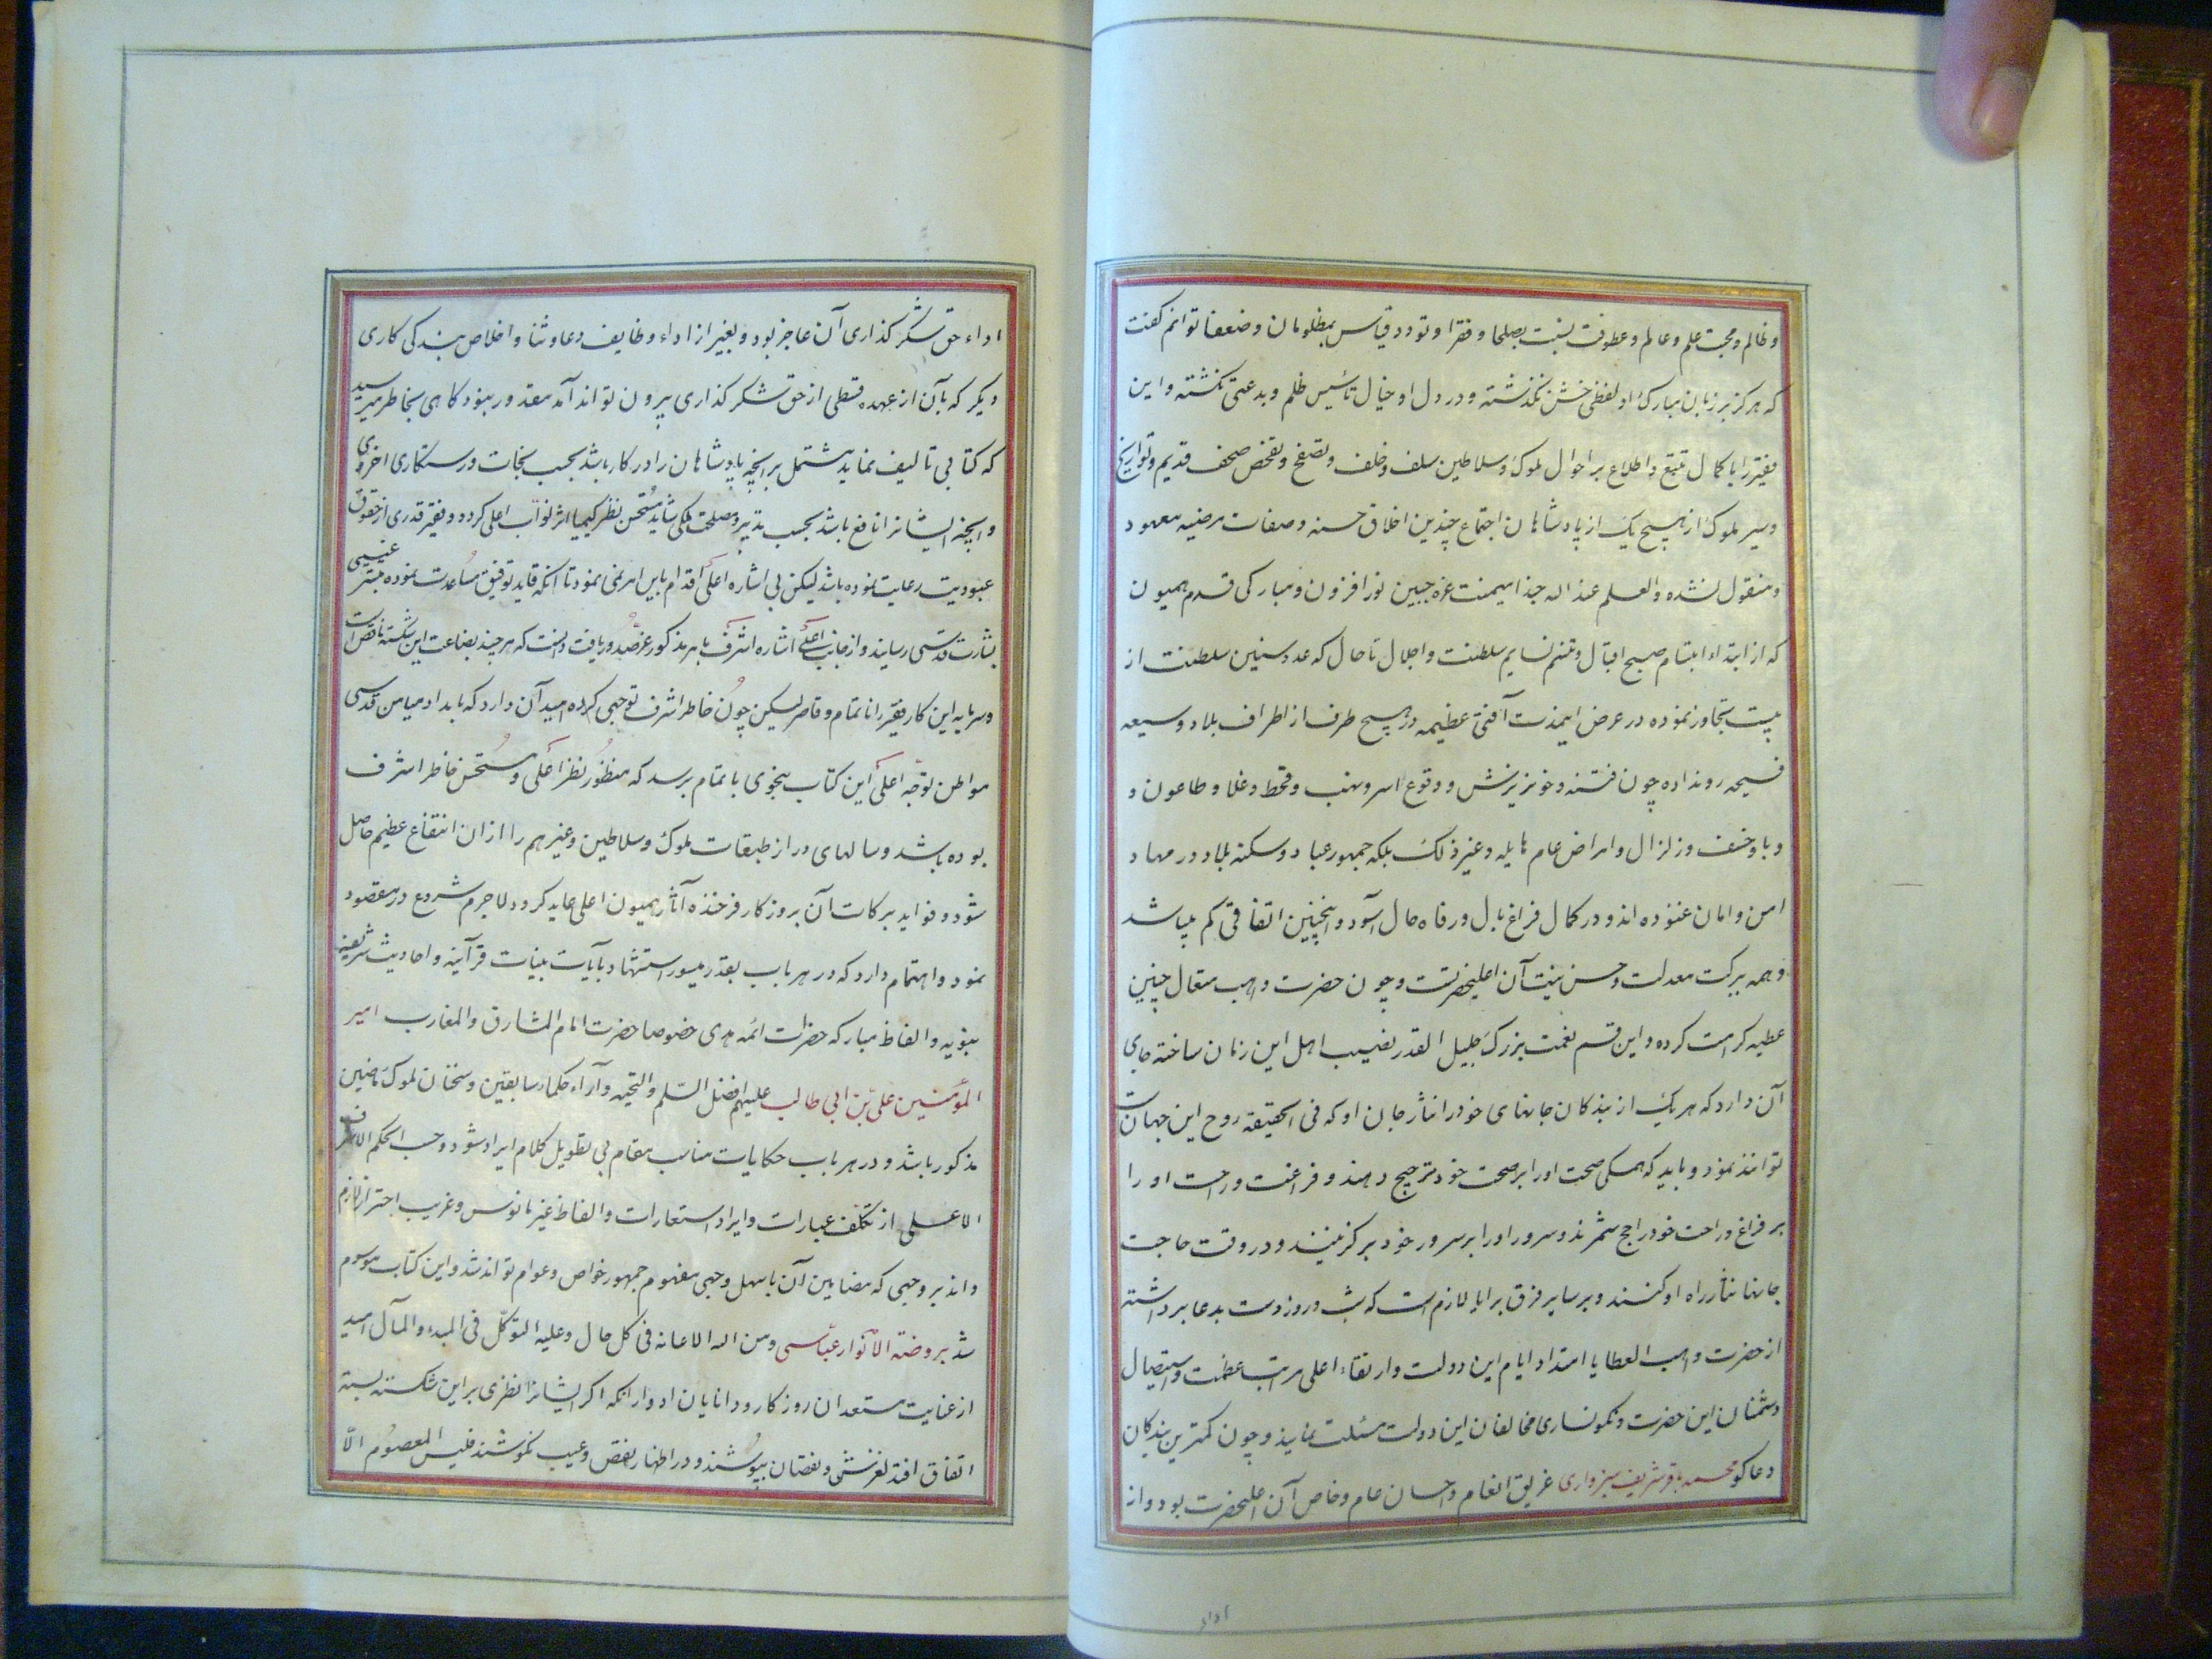 و ظالم و محبت علم و عالم و عطوفت بنسبت بصلحا و فقرا و تودد قیاس بمظلومان و ضعفا توانم کفت
که هرکز بر زبان مبارک او لفظی فحش نکذشته و در دل او خیال تأسیس ظلم و بدعتی نکشته و این
فقیر را با کمال تتبع و اطلاع بر احوال ملوک و سلاطین سلف و خلف و تصفح و تفحص صحف قدیم و تواریخ
و سیر ملوک از هیچ یک از پادشاهان اجتماع چندین اخلاق حسنه و صفات مرضیه معهود
و منقول نشده والعلم عند الله جذا بمیمنت غره جبین نور افزون و مبارکی قدم همیون
که از ابتداء ابتسام صبح اقبال و تنسم نسایم سلطنت و اجلال تا حال که عدد سنین سلطنت از
بیست تجاوز نموده در عرض اینمدت آفتی عظیمه در هیچ طرف از اطراف بلاد وسیعه
فسیحه رونداده چون فتنه و خونریزش و وقوع اسر و نهب و قحط و غلا و طاعون و
و با و خسف و زلزال و امراض عام هایله و غیر ذلک بلکه جمهور عباد و سکنه بلاد در مهاد
امن و امان غنوده اند و در کمال فراغ بال و رفاه حال آسود و اینچنین اتفاقی کم میباشد
و همه ببرکت معدلت و حسن نیت آن اعلیحضرتست و چون حضرت واهب متعال چنین
عطیه کرامت کرده و این قسم نعمت بزرک جلیل القدر نصیب اهل این زمان ساخته جای
آن دارد که هر یک از بندکان جانهای خود را نثار جان او که فی الحقیقه روح این جهانست
توانند نمود و باید که همکی صحت او را بر صحت خود ترجیح دهند و فراغت و راحت او را
بر فراغ و راحت خود راجح شمرند و سرور او را بر سرور خود برکزینند و در وقت حاجت
جانها نثار راه او کنند و بر سایر فرق برایا لازم است که شب و روز دست بدعا برداشته
از حضرت واهب العطایا امتداد ایام این دولت و ارتقاء اعلی مراتب عظمت و استیصال
دشمنان این حضرت و نکونساری مخالفان این دولت مسئلت نمایند و چون کمترین بندکان
دعاکو محمد باقر شریف سبزواری غریق انعام و احسان عام و خاص آن اعلیحضرت بود و از
اداء
اداء حق شکر کذاری آن عاجز بود و بغیر از اداء وظایف دعا و ثنا و اخلاص بندکی کاری
دیکر که بآن از عهده قسطی از حق شکر کذاری بیرون تواند آمد مقدور نبود کاهی بخاطر میرسید
که کتابی تالیف نماید مشتمل بر آنچه پادشاهان را در کار باشد بحسب نجات و رستکاری اخروی
و آنچه ایشانرا نافع باشد بحسب تدبیر و مصلحت ملکی شاید مستحسن نظر کیمیا اثر نواب اعلی کردد و فقیر قدری از حقوق
عبودیت رعایت نموده باشد لیکن بی اشاره اعلی اقدام باین امر نمی نمود تا آنکه قاید توفیق مساعدت نموده مبشر غیبی
بشارت قدسی رسانید و از جانب اعلی اشاره اشرف بامر مذکور عز صدور یافت دانست که هر چند بضاعت این شکسته ناقص است
و سرمایه این کار فقیر را ناتمام و قاصر لیکن چون خاطر اشرف توجهی کرده امید آن دارد که بامداد میامن قدسی
مواطن توجه اعلی این کتاب بنحوی باتمام برسد که منظور نظر اعلی و مستحسن خاطر اشرف
بوده باشد و سالهای دراز طبقات ملوک و سلاطین و غیرهم را ازان انتفاع عظیم حاصل
شود و فواید برکات آن بروزکار فرخنده آثار همیون اعلی عاید کردد لاجرم شروع در مقصود
نمود و اهتمام دارد که در هر باب بقدر میسور استشهاد بآیات بینات قرآنیه و احادیث شریفه
نبویه و الفاظ مبارکه حضرات ائمه هدی خصوصا حضرت امام المشارق والمغارب امیر
المؤمنین علی بن ابی طالب علیهم افضل السلم والتحیه و آراء حکماء سابقین و سخنان ملوک ماضین
مذکور باشد و در هر باب حکایات مناسب مقام بی تطویل کلام ایراد شود و حسب الحکم الاشرف
الاعلی از تکلف عبارات و ایراد استعارات و الفاظ غیر مانوس و غریب احتراز لازم
داند بر وجهی که مضامین آن باسهل وجهی مفهوم جمهور خواص و عوام تواند شد و این کتاب موسوم
شد بروضة الانوار عباسی ومن الله الاعانه فی کل حال وعلیه التوکل فی المبدء والمآل امید
از عنایت مستعدان روزکار و دانایان ادوار آنکه اکر ایشانرا نظری بر این شکسته بسته
اتفاق افتد لغزشی و نقصان بپوشند و در اظهار نقص و عیب نکوشند فلیس المعصوم الا